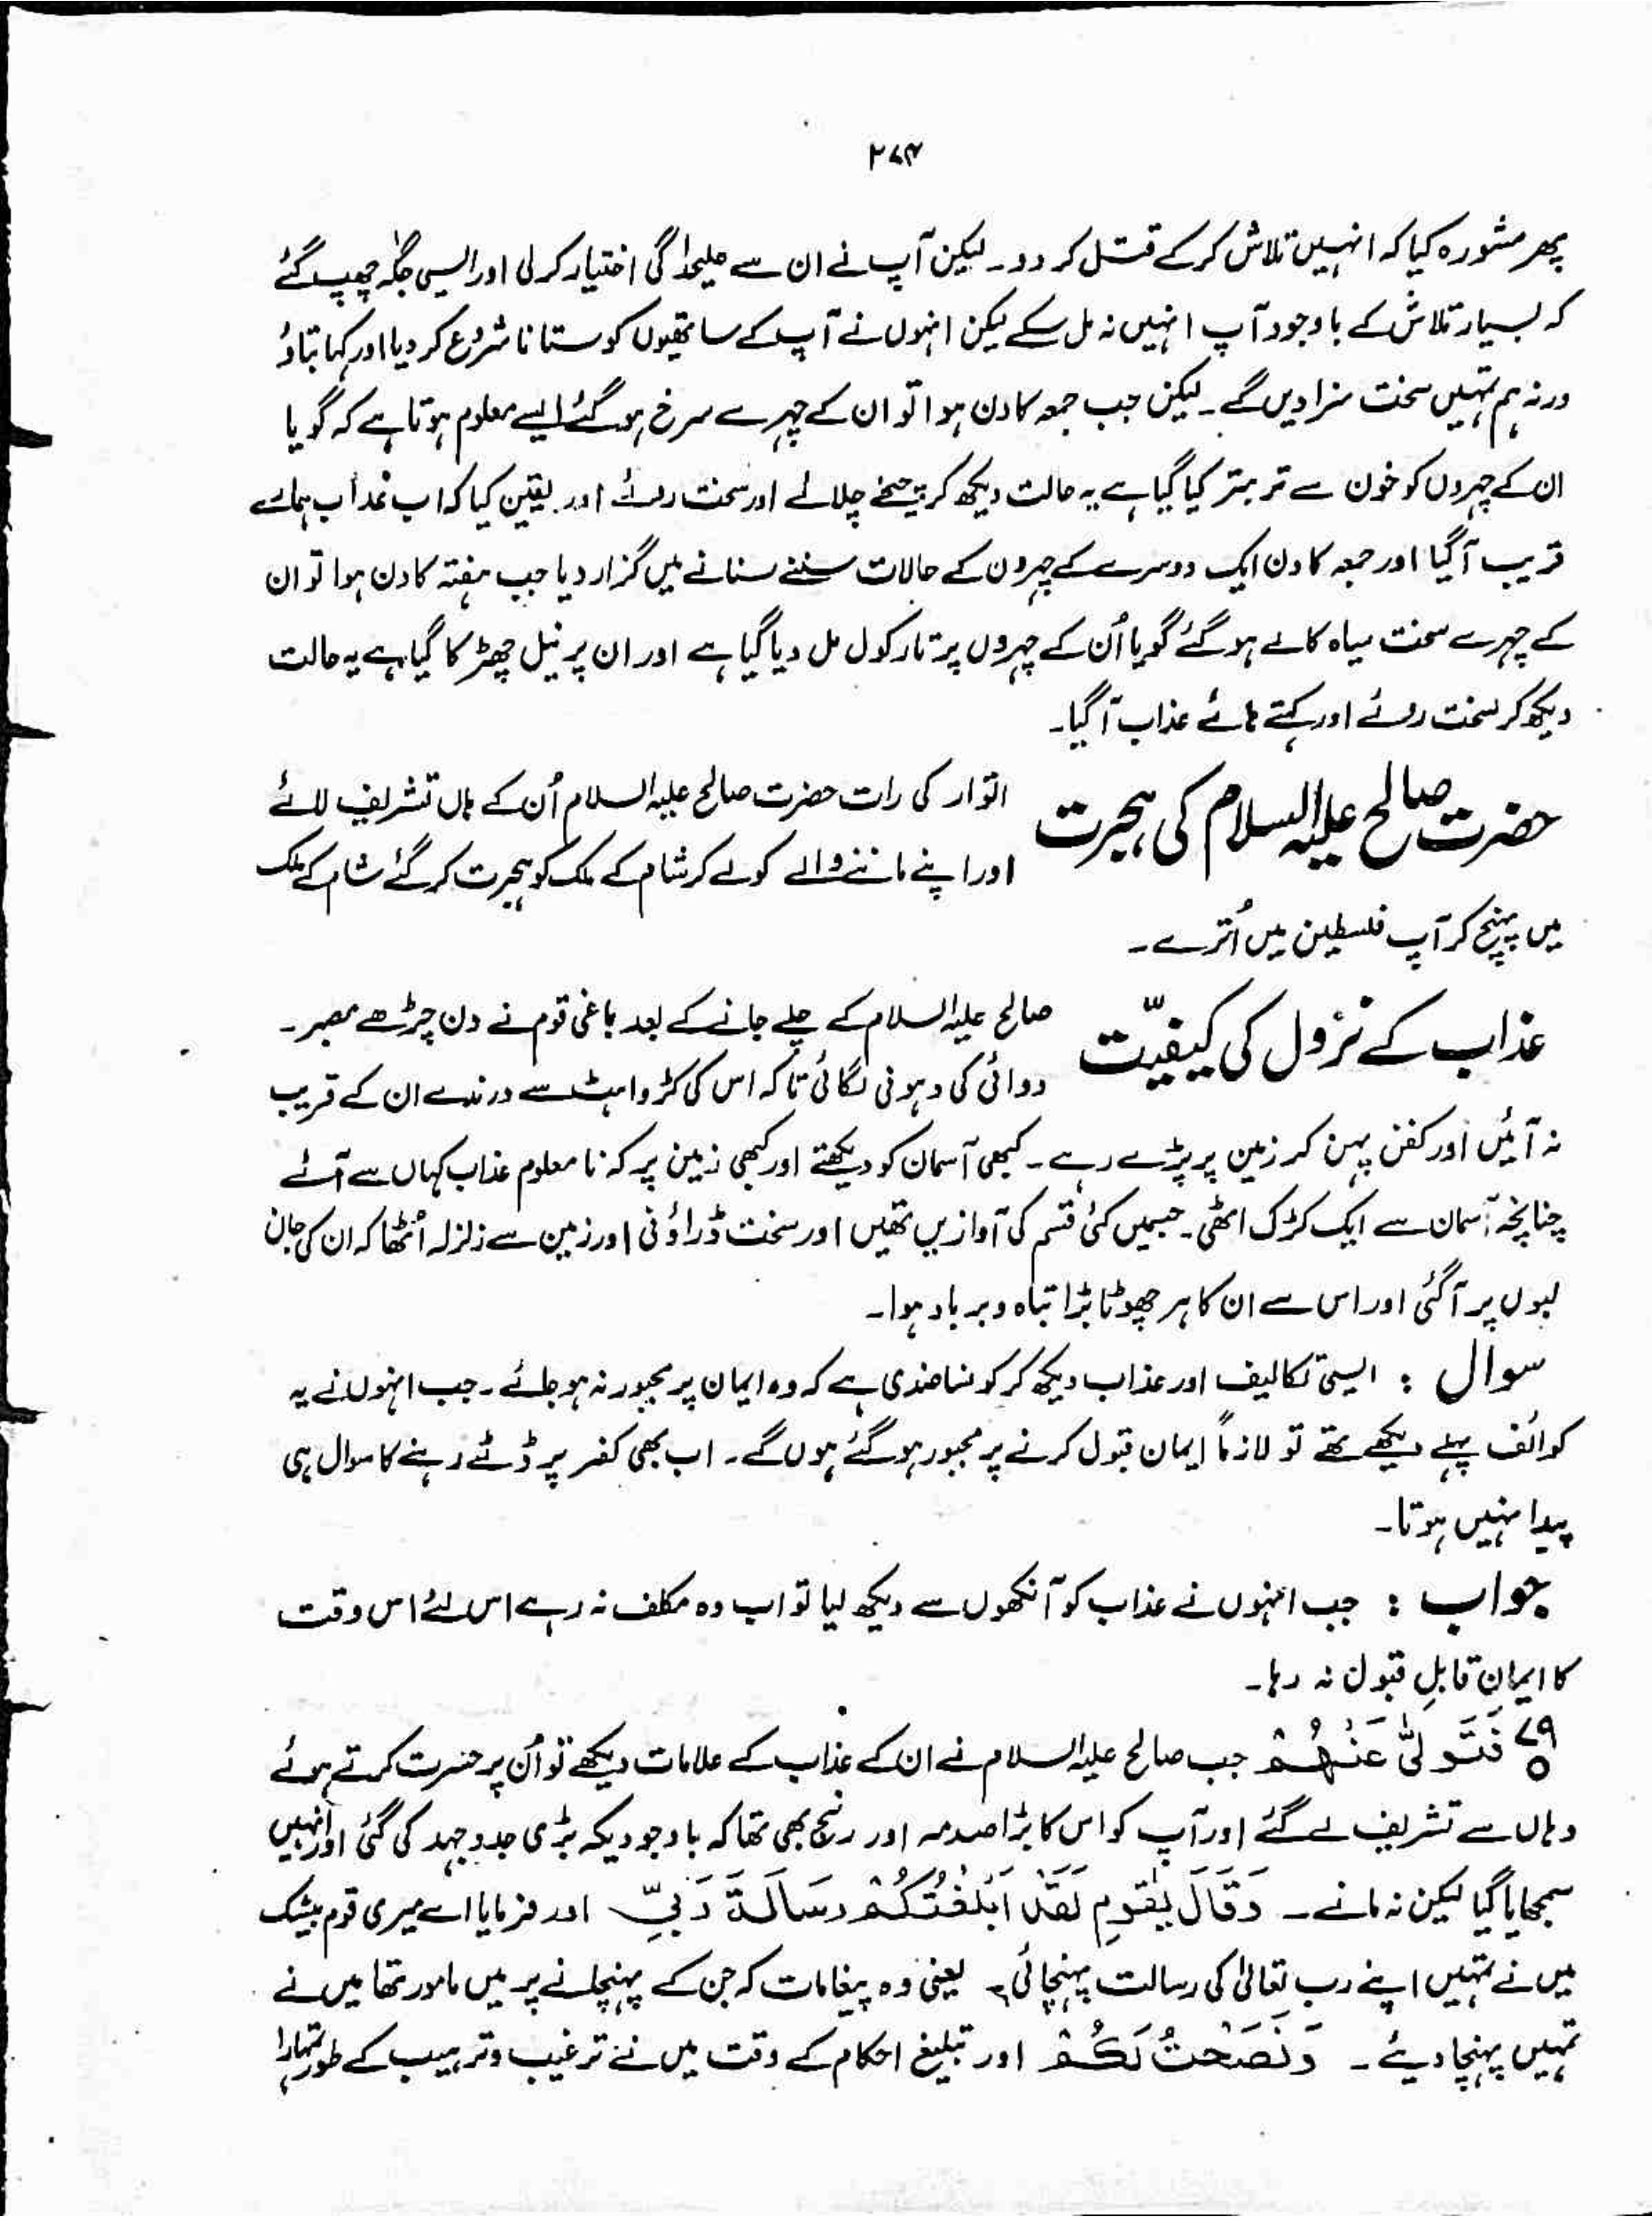 ۲۷۴
پھر مشورہ کیا کہ انہیں تلاش کر کے قتل کر دو۔ لیکن آپ نے ان سے علیحدگی اختیار کر لی اور ایسی جگہ چھپ گئے
کہ بسیار تلاش کے باوجود آپ انہیں نہ مل سکے لیکن انہوں نے آپ کے ساتھیوں کو ستانا شروع کر دیا اور کہا بتاؤ
ورنہ ہم تمہیں سخت سزا دیں گے۔ لیکن جب جمعہ کا دن ہوا تو ان کے چہرے سرخ ہو گئے ایسے معلوم ہوتا ہے کہ گویا
ان کے چہروں کو خون سے تر بتر کیا گیا ہے یہ حالت دیکھ کر چیخے چلائے اور سخت روئے اور یقین کیا کہ اب عذاب ہمارے
قریب آ گیا اور جمعہ کا دن ایک دوسرے کے چہروں کے حالات سننے سنانے میں گزار دیا جب ہفتہ کا دن ہوا تو ان
کے چہرے سخت سیاہ کالے ہو گئے گویا اُن کے چہروں پر تارکول مل دیا گیا ہے اور ان پر نیل چھڑکا گیا ہے یہ حالت
دیکھ کر سخت روئے اور کہتے ہائے عذاب آ گیا۔
حضرت صالح علیہ السلام کی ہجرت اتوار کی رات حضرت صالح علیہ السلام اُن کے ہاں تشریف لائے
اور اپنے ماننے والے کو لے کر شام کے ملک کو ہجرت کر گئے شام کے ملک
میں پہنچ کر آپ فلسطین میں اُترے۔
عذاب کے نزول کی کیفیّت صالح علیہ السلام کے چلے جانے کے بعد باغی قوم نے دن چڑھے مصبر۔
دوائی کی دہونی لگائی تا کہ اس کی کڑواہٹ سے درندے ان کے قریب
نہ آئیں اور کفن پہن کر زمین پر پڑے رہے۔ کبھی آسمان کو دیکھتے اور کبھی زمین پر کہ نا معلوم عذاب کہاں سے آئے
چنانچہ آسمان سے ایک کڑک اٹھی۔ جسمیں کئی قسم کی آوازیں تھیں اور سخت ڈراؤنی اور زمین سے زلزلہ اُٹھا کہ ان کی جان
لبوں پر آ گئی اور اس سے ان کا ہر چھوٹا بڑا تباہ و برباد ہوا۔
سوال : ایسی تکالیف اور عذاب دیکھ کر کونسا ضدی ہے کہ وہ ایمان پر مجبور نہ ہو جائے۔ جب انہوں نے یہ
کوائف پہلے دیکھے تھے تو لازماً ایمان قبول کرنے پر مجبور ہو گئے ہوں گے۔ اب بھی کفر پر ڈٹے رہنے کا سوال ہی
پیدا نہیں ہوتا۔
جواب : جب انہوں نے عذاب کو آنکھوں سے دیکھ لیا تو اب وہ مکلف نہ رہے اس لئے اس وقت
کا ایمان قابلِ قبول نہ رہا۔
۷۹ فَتَوَلّٰی عَنْهُمْ جب صالح علیہ السلام نے ان کے عذاب کے علامات دیکھے تو اُن پر حسرت کرتے ہوئے
وہاں سے تشریف لے گئے اور آپ کو اس کا بڑا صدمہ اور رنج بھی تھا کہ باوجودیکہ بڑی جدوجہد کی گئی اور انہیں
سمجھایا گیا لیکن نہ مانے۔ وَقَالَ یٰقَوْمِ لَقَدْ اَبْلَغْتُكُمْ رِسَالَةَ رَبِّیْ اور فرمایا اے میری قوم بیشک
میں نے تمہیں اپنے رب تعالیٰ کی رسالت پہنچائی، یعنی وہ پیغامات کہ جن کے پہنچانے پر میں مامور تھا میں نے
تمہیں پہنچا دیئے۔ وَنَصَحْتُ لَكُمْ اور تبلیغ احکام کے وقت میں نے ترغیب و ترہیب کے طور تمہارا